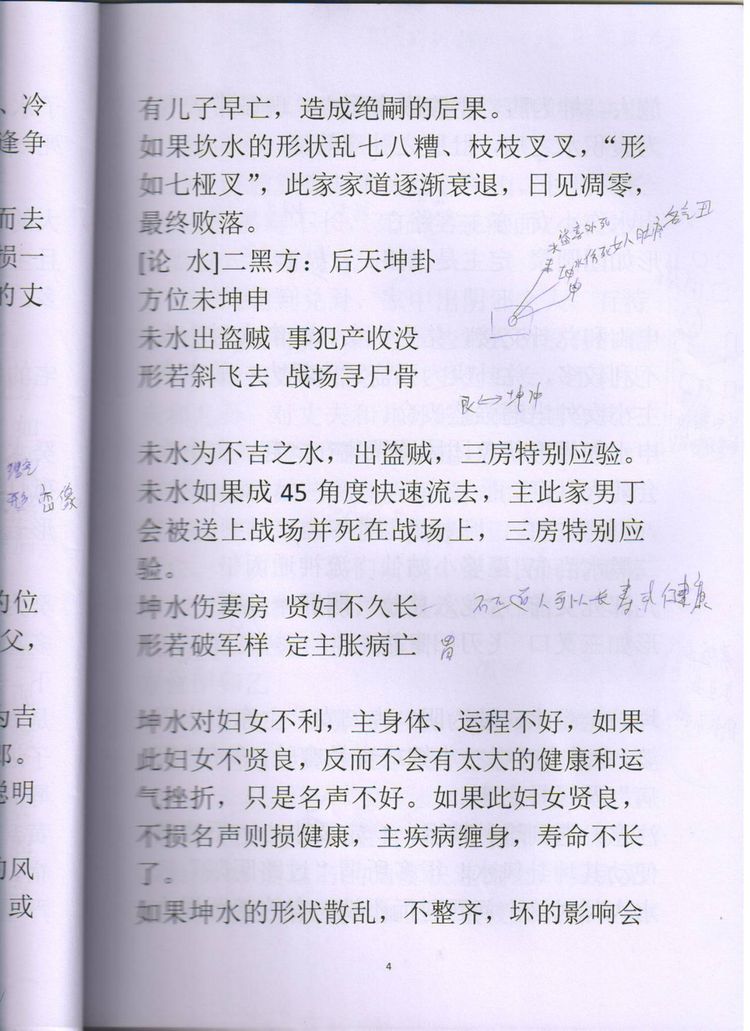 、冷
逢争
而去
损一
的丈
的位
父，
为吉
郎。
聪明
的风
或
有儿子早亡，造成绝嗣的后果。
如果坎水的形状乱七八糟、枝枝叉叉，“形
如七桠叉”，此家家道逐渐衰退，日见凋零，
最终败落。
[论 水]二黑方：后天坤卦
方位未坤申
未水出盗贼 事犯产收没
形若斜飞去 战场寻尸骨
艮↔坤冲
未水为不吉之水，出盗贼，三房特别应验。
未水如果成 45 角度快速流去，主此家男丁
会被送上战场并死在战场上，三房特别应
验。
坤水伤妻房 贤妇不久长
形若破军样 定主胀病亡
胃
坤水对妇女不利，主身体、运程不好，如果
此妇女不贤良，反而不会有太大的健康和运
气挫折，只是名声不好。如果此妇女贤良，
不损名声则损健康，主疾病缠身，寿命不长
了。
如果坤水的形状散乱，不整齐，坏的影响会
4